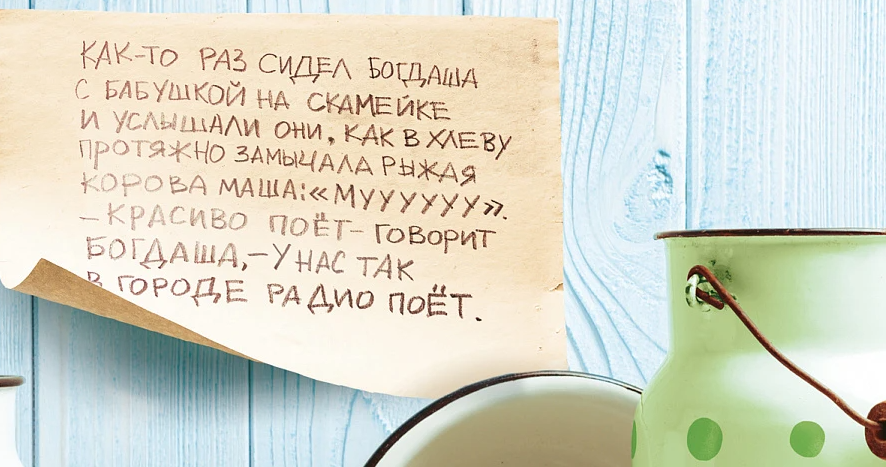 КАК-ТО РАЗ СИДЕЛ БОГДАША
С БАБУШКОЙ НА СКАМЕЙКЕ
И УСЛЫШАЛИ ОНИ, КАК В ХЛЕВУ
ПРОТЯЖНО ЗАМЫЧАЛА РЫЖАЯ
КОРОВА МАША: «МУУУУУУУ».
– КРАСИВО ПОЁТ – ГОВОРИТ
БОГДАША, – У НАС ТАК
В ГОРОДЕ РАДИО ПОЁТ.